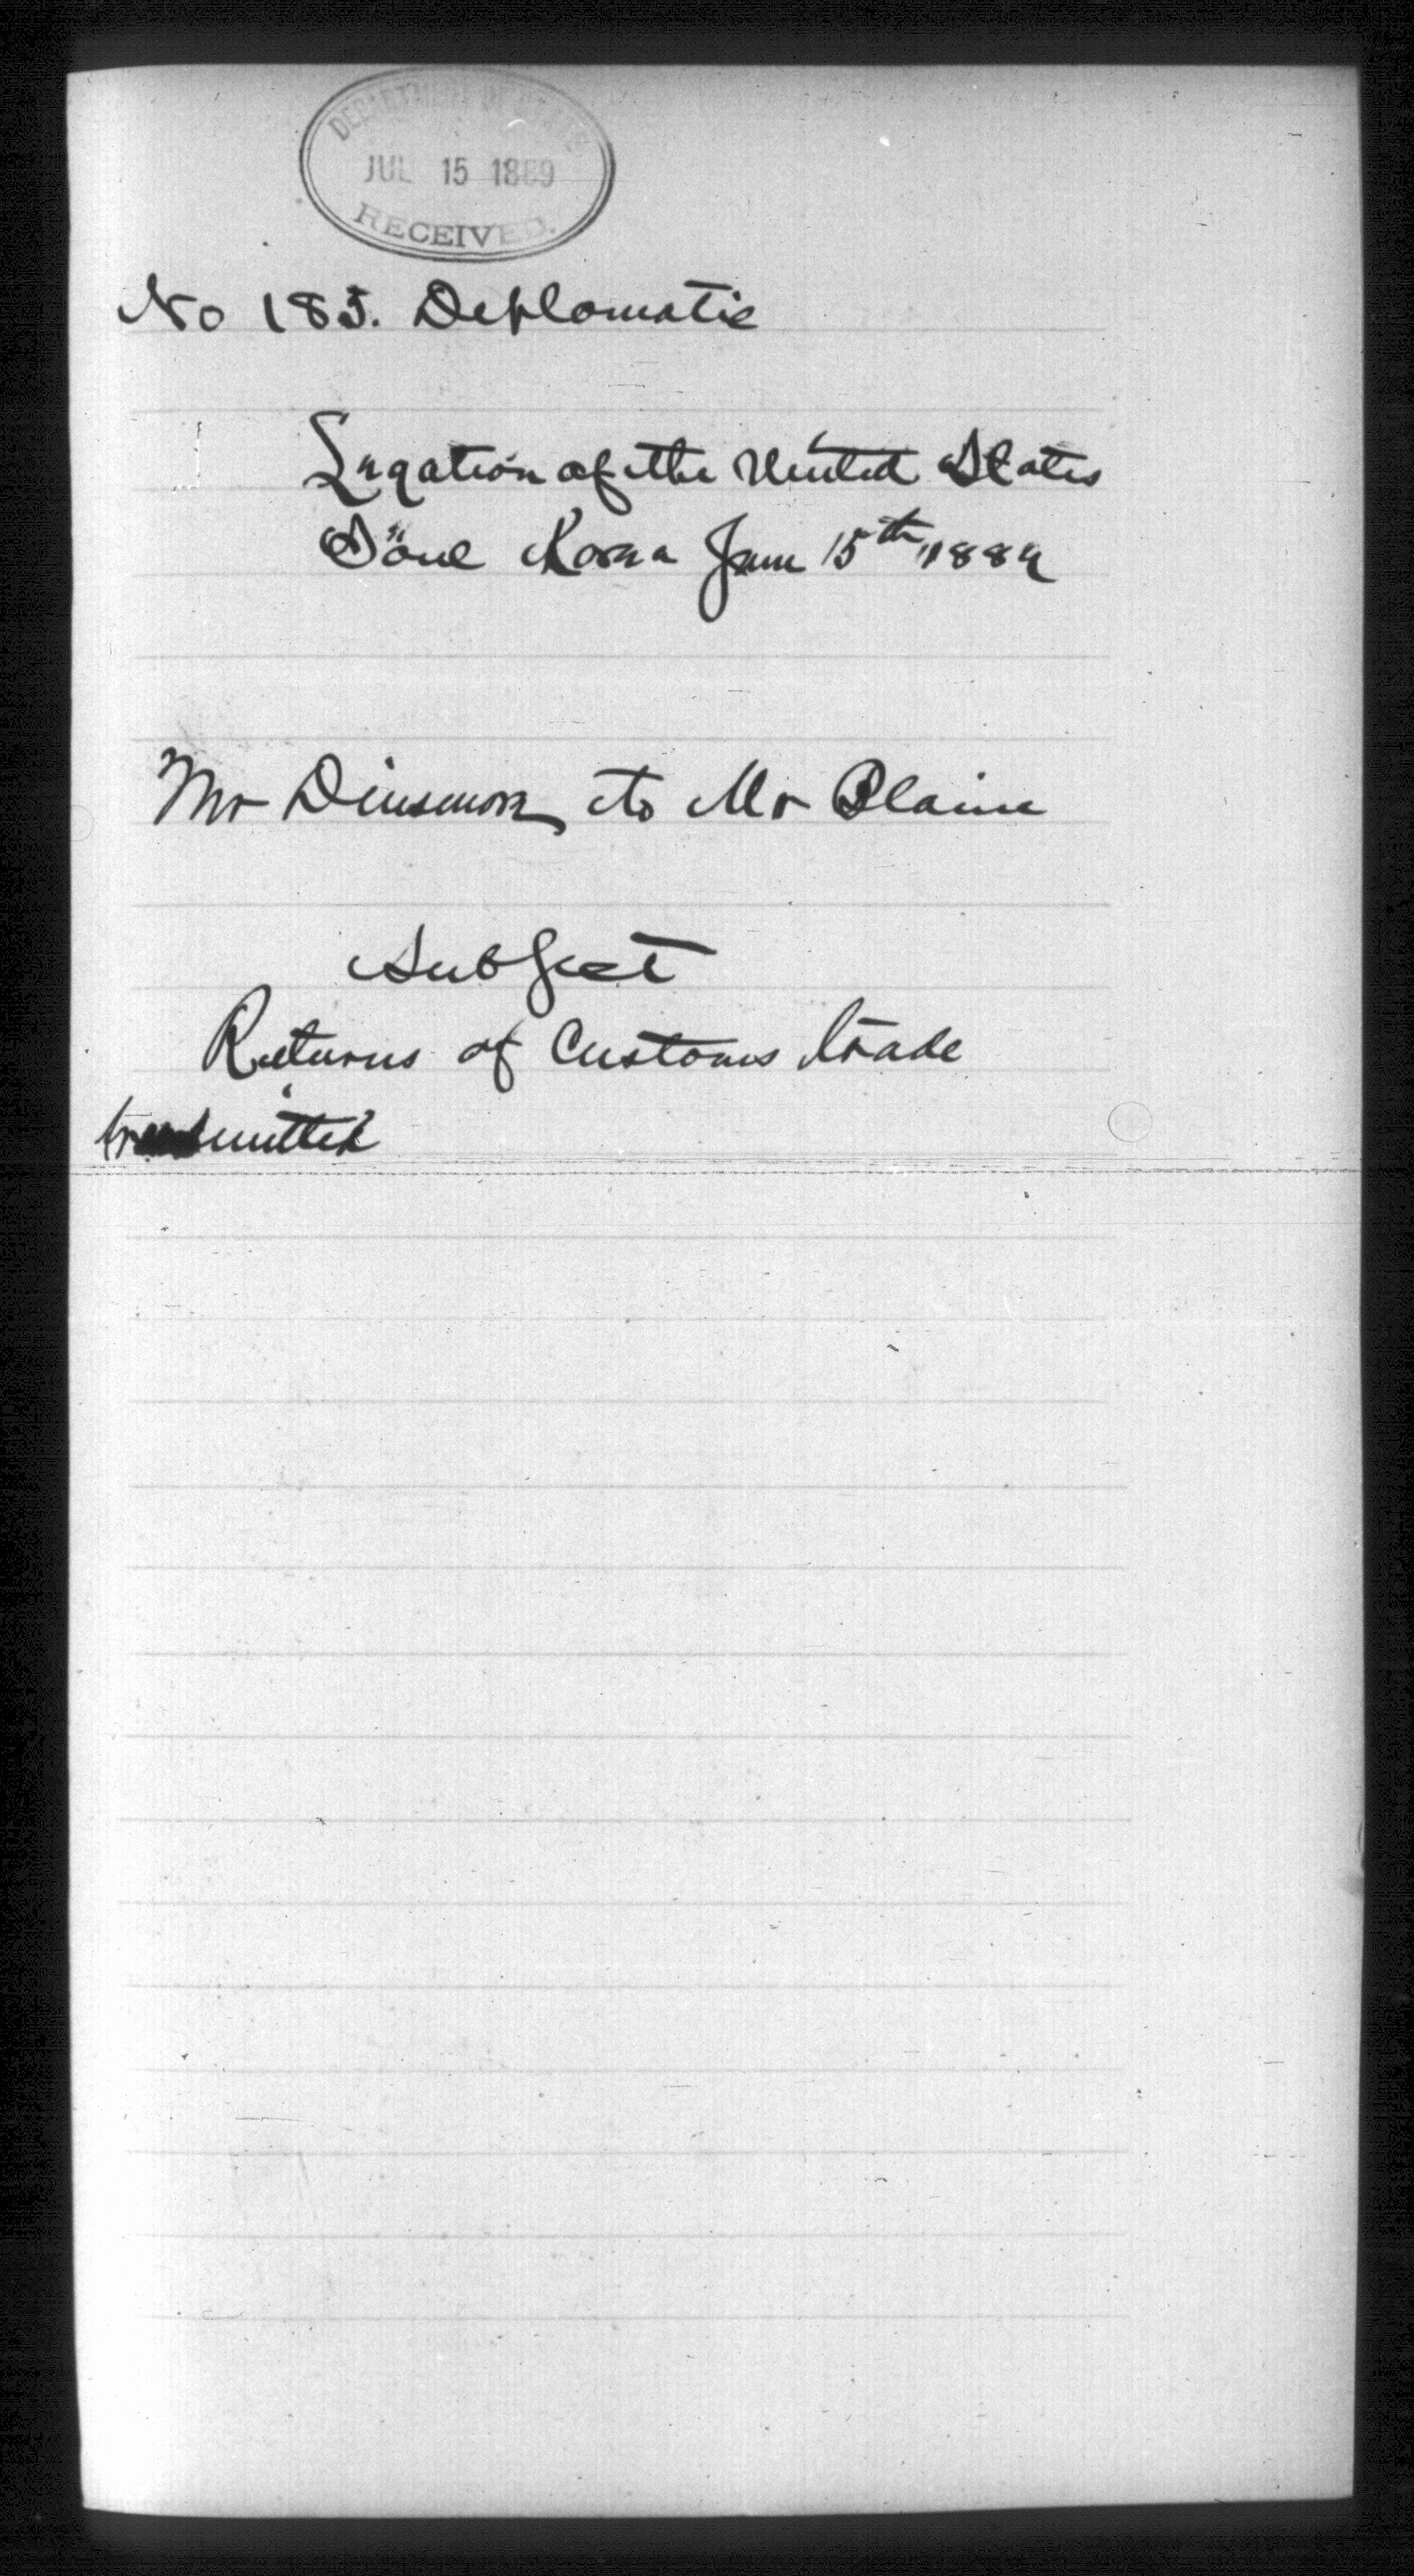 DEPARTMENT OF STATE
JUL 15 1889
RECEIVED.
No 185. Deplomatic
Legation of the United States
Söul Korea June 15th, 1889
Mr Dinsmore to Mr Blaine
Subject
Returns of Customs trade
transmitted